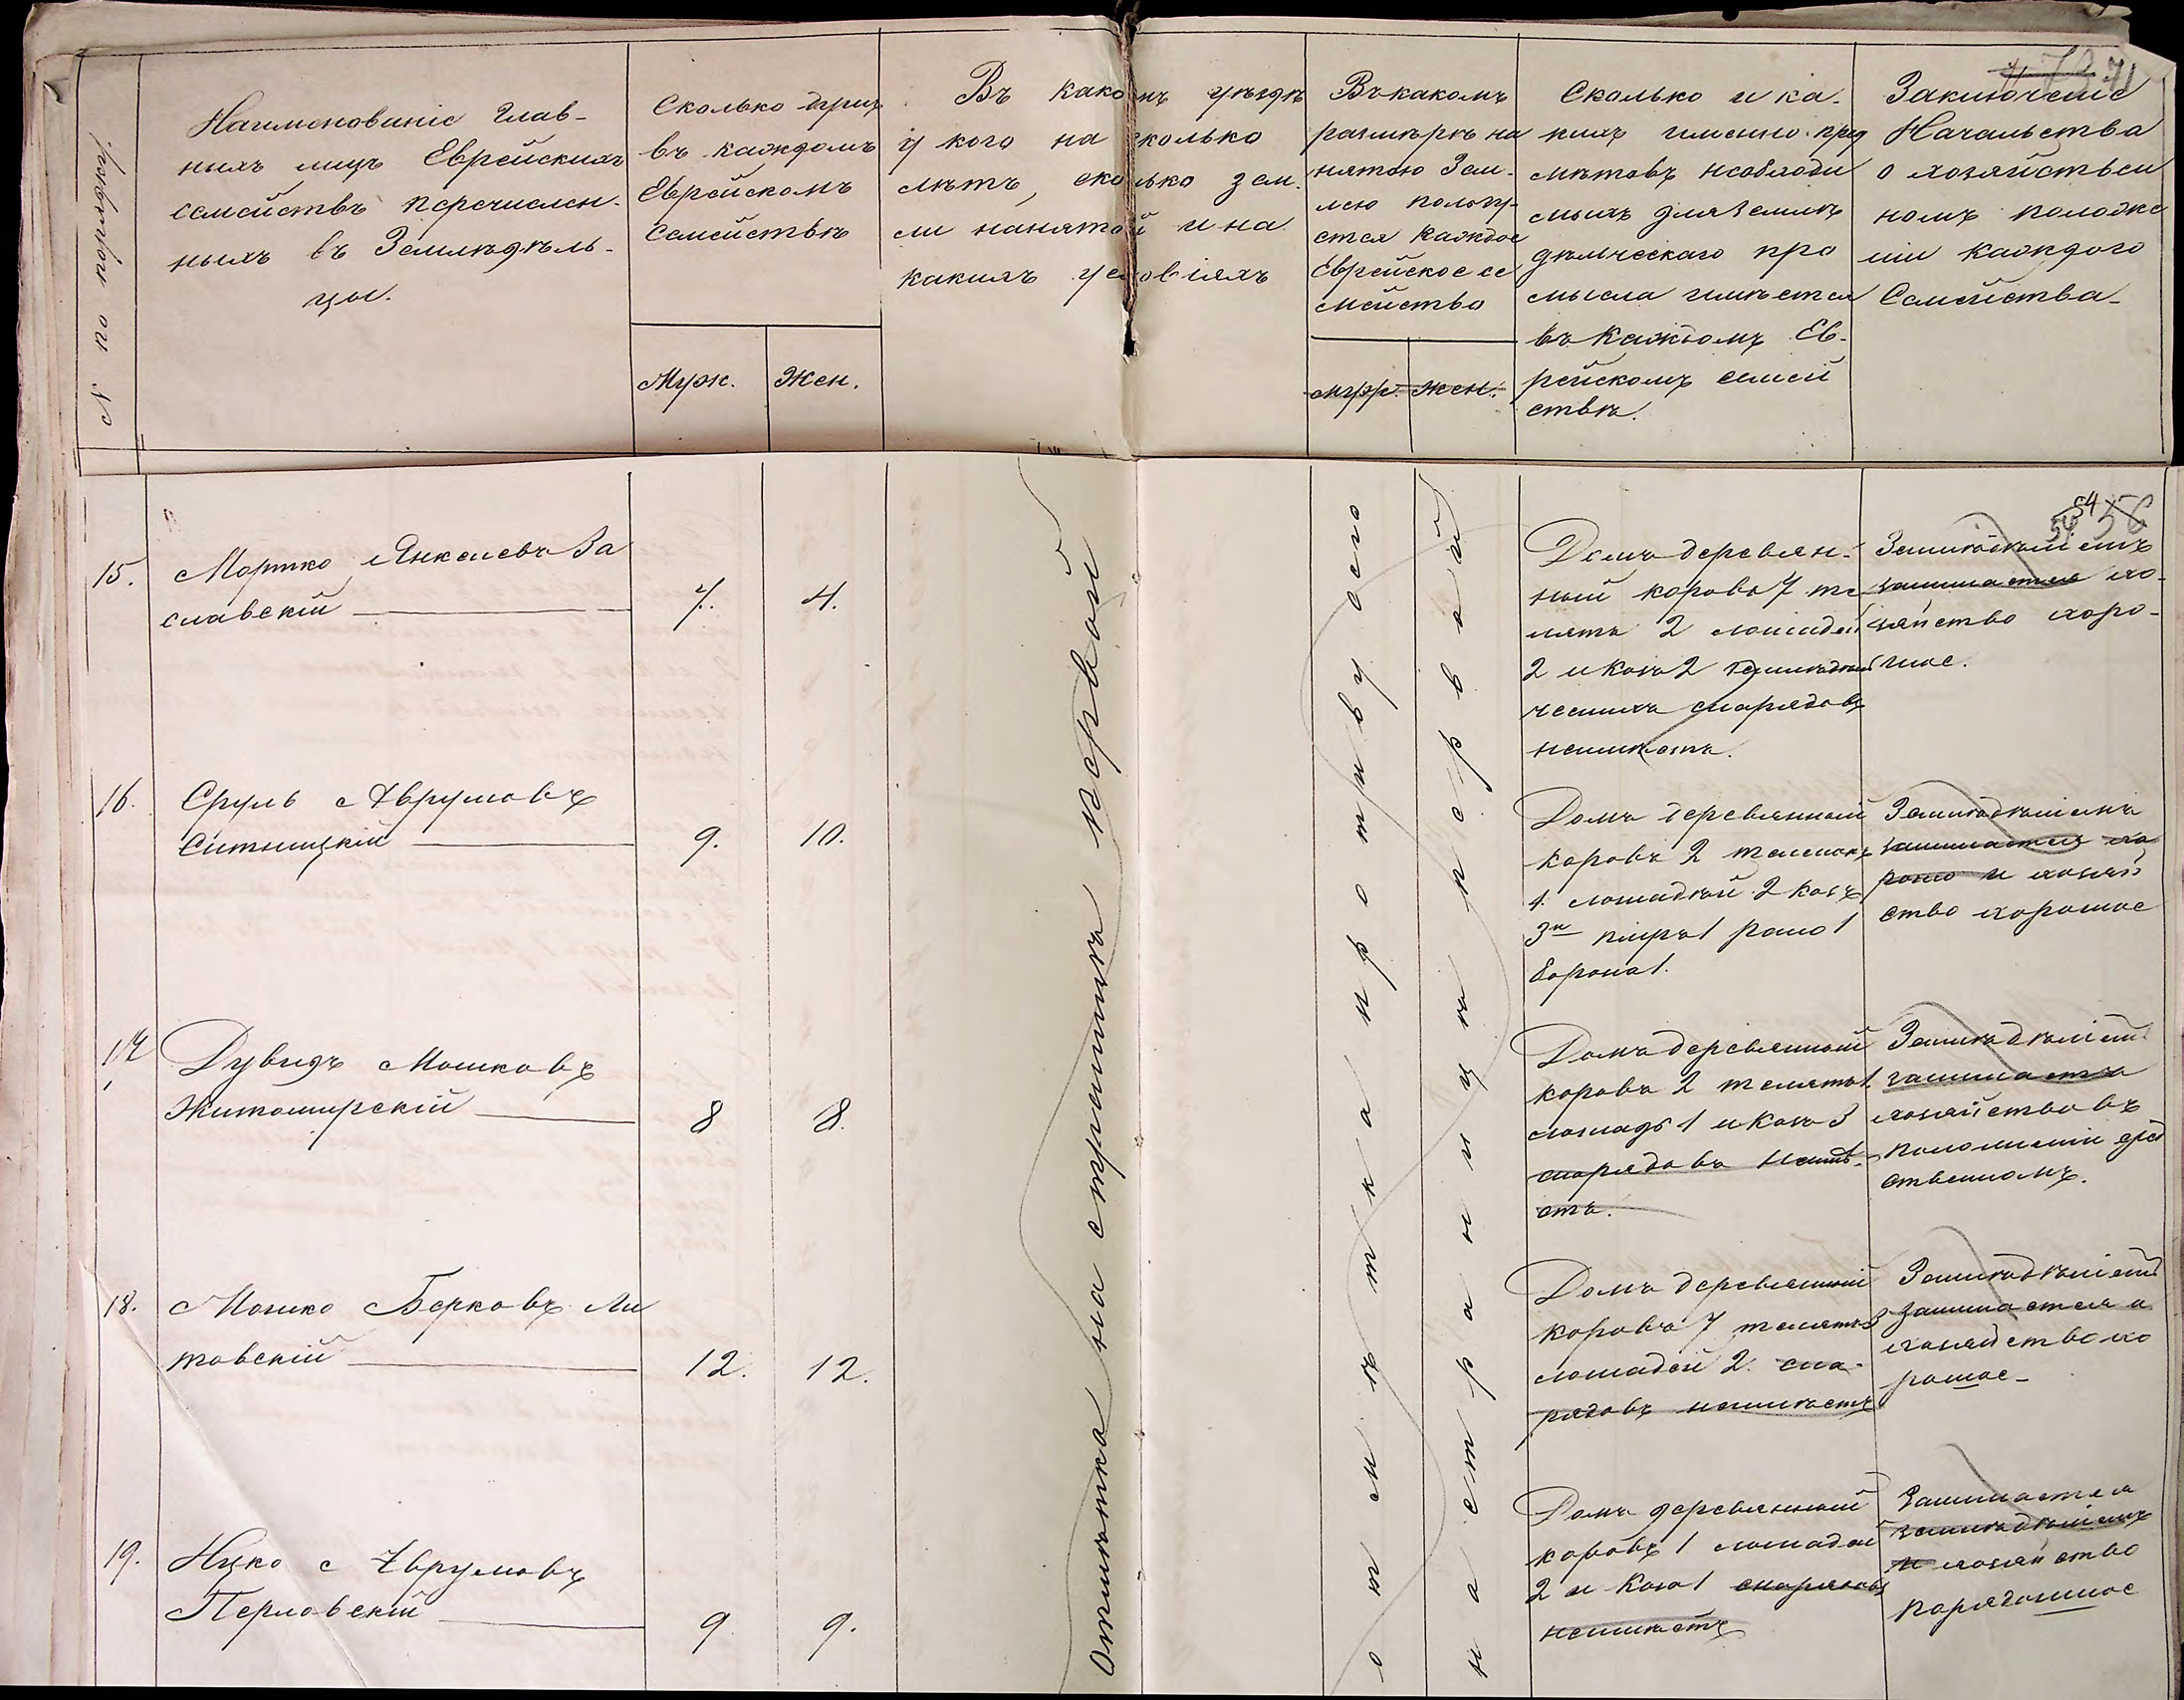 № по порядку
Наименованіе глав-
ныхъ лицъ Еврейскихъ
семействъ перечислен-
ныхъ въ Земледѣль-
цы.
Сколько душъ
въ каждомъ
Еврейскомъ
Семействѣ
Муж. Жен.
Въ какомъ уѣздѣ
у кого на сколько
лѣтъ, сколько зем.
ли нанятой и на
какихъ условіяхъ
Въ какомъ
размѣрѣ на
нятою Зем-
лею пользу-
ется каждое
Еврейское се
мейство
муж. жен.
Сколько и ка-
кихъ именно пред
мѣтовъ необходи
мыхъ для земле
дѣльческаго про
мысла имѣется
въ каждомъ Ев-
рейскомъ семей
ствѣ.
71
Заключеніе
Начальства
о хозяйствен
номъ положе
ніи каждого
Семейства
54 56
54
15. Мортко Янкелевъ За
славскій 7. 4.
Домъ деревян-
ный коровъ 7 те
лятъ 2 лошадей
2 и козъ 2 земледѣль
ческихъ снарядовъ
неимѣетъ.
Земледѣліемъ
занимается хо-
зяйство хоро-
шое.
16. Сруль Аврумовъ
Ситницкій 9. 10.
Домъ деревянный
коровъ 2 теленокъ
1. лошадѣй 2 козъ
3и плугъ 1 рало 1
борона 1.
Земледѣліемъ
занимается хо
рошо и хозяй
ство хорошое
17. Дувидъ Мошковъ
Житомирскій 8 8.
Домъ деревянный
коровъ 2 телятъ 1.
лошадь 1 и козъ 3
снарядовъ неимѣ-
етъ.
Земледѣліемъ
занимается
хозяйство въ
положеніи
ственномъ.
18. Мошко Берковъ Ли
товскій 12. 12.
Домъ деревянный
коровъ 7 телятъ 3
лошадей 2. сна-
рядовъ неимѣетъ
Земледѣліемъ
занимается а
хозяйство хо
рошое
19. Нцко Аврумовъ
Перловскій 9 9.
Домъ деревянный
коровъ 1 лошадей
2 и коза 1 снарядовъ
неимѣетъ
Занимается
земледѣліемъ
и хозяйство
порядошное
Отмѣтка на страницѣ первой
отмѣтка противу сего
на страницѣ первой